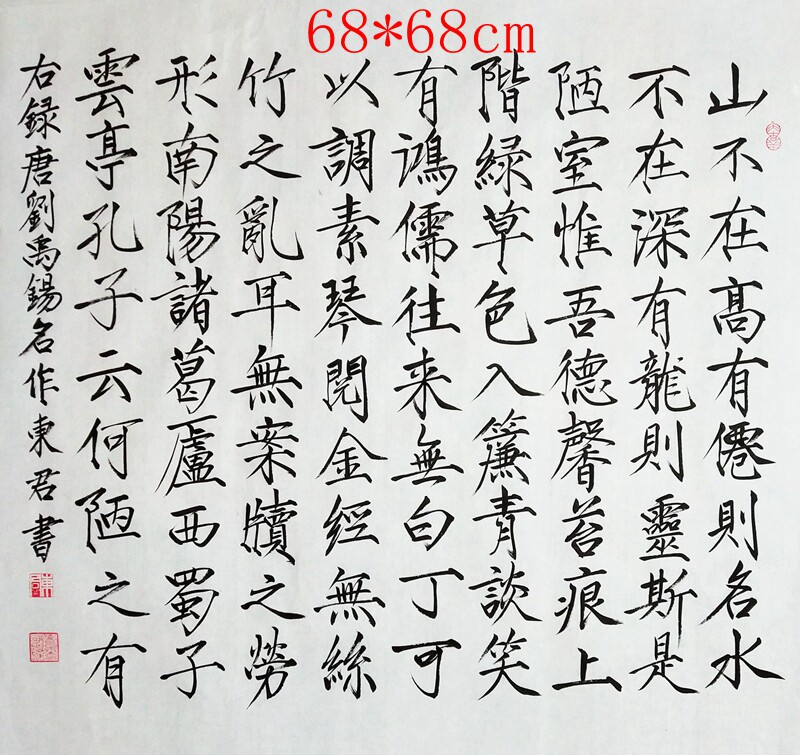 68*68cm
山不在髙有僊則名水
不在深有龍則靈斯是
陋室惟吾德馨苔痕上
階緑草色入簾青談笑
有鴻儒往来無白丁可
以調素琴閱金經無絲
竹之亂耳無案牘之勞
形南陽諸葛廬西蜀子
雲亭孔子云何陋之有
右録唐劉禹錫名作東君書